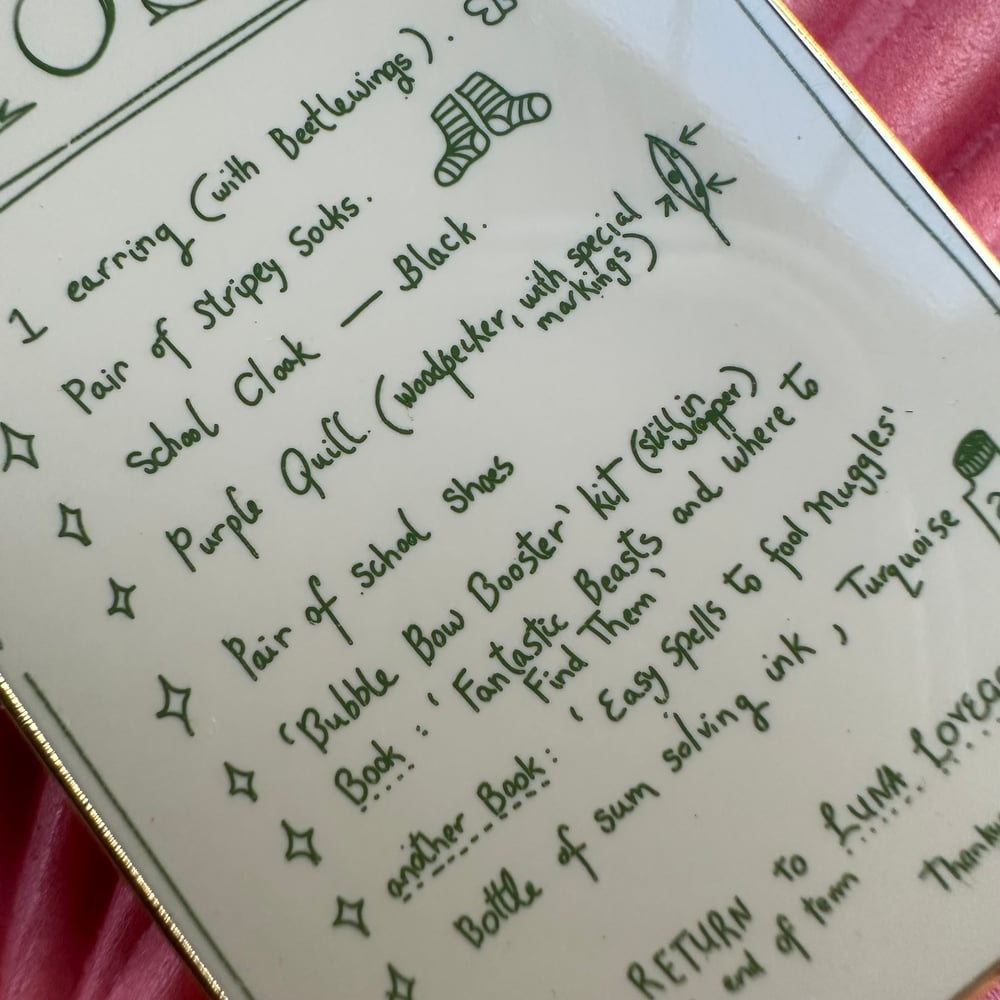 1 earring (with Beetlewings).
Pair of Stripey Socks.
School Cloak — Black.
Purple Quill. (woodpecker, with special
markings)
Pair of school shoes
'Bubble Bow Booster' kit (still in
wrapper)
Book: 'Fantastic Beasts and where to
Find Them'
another Book: 'Easy spells to fool Muggles'
Bottle of sum solving ink, Turquoise
RETURN to LUNA
end of term